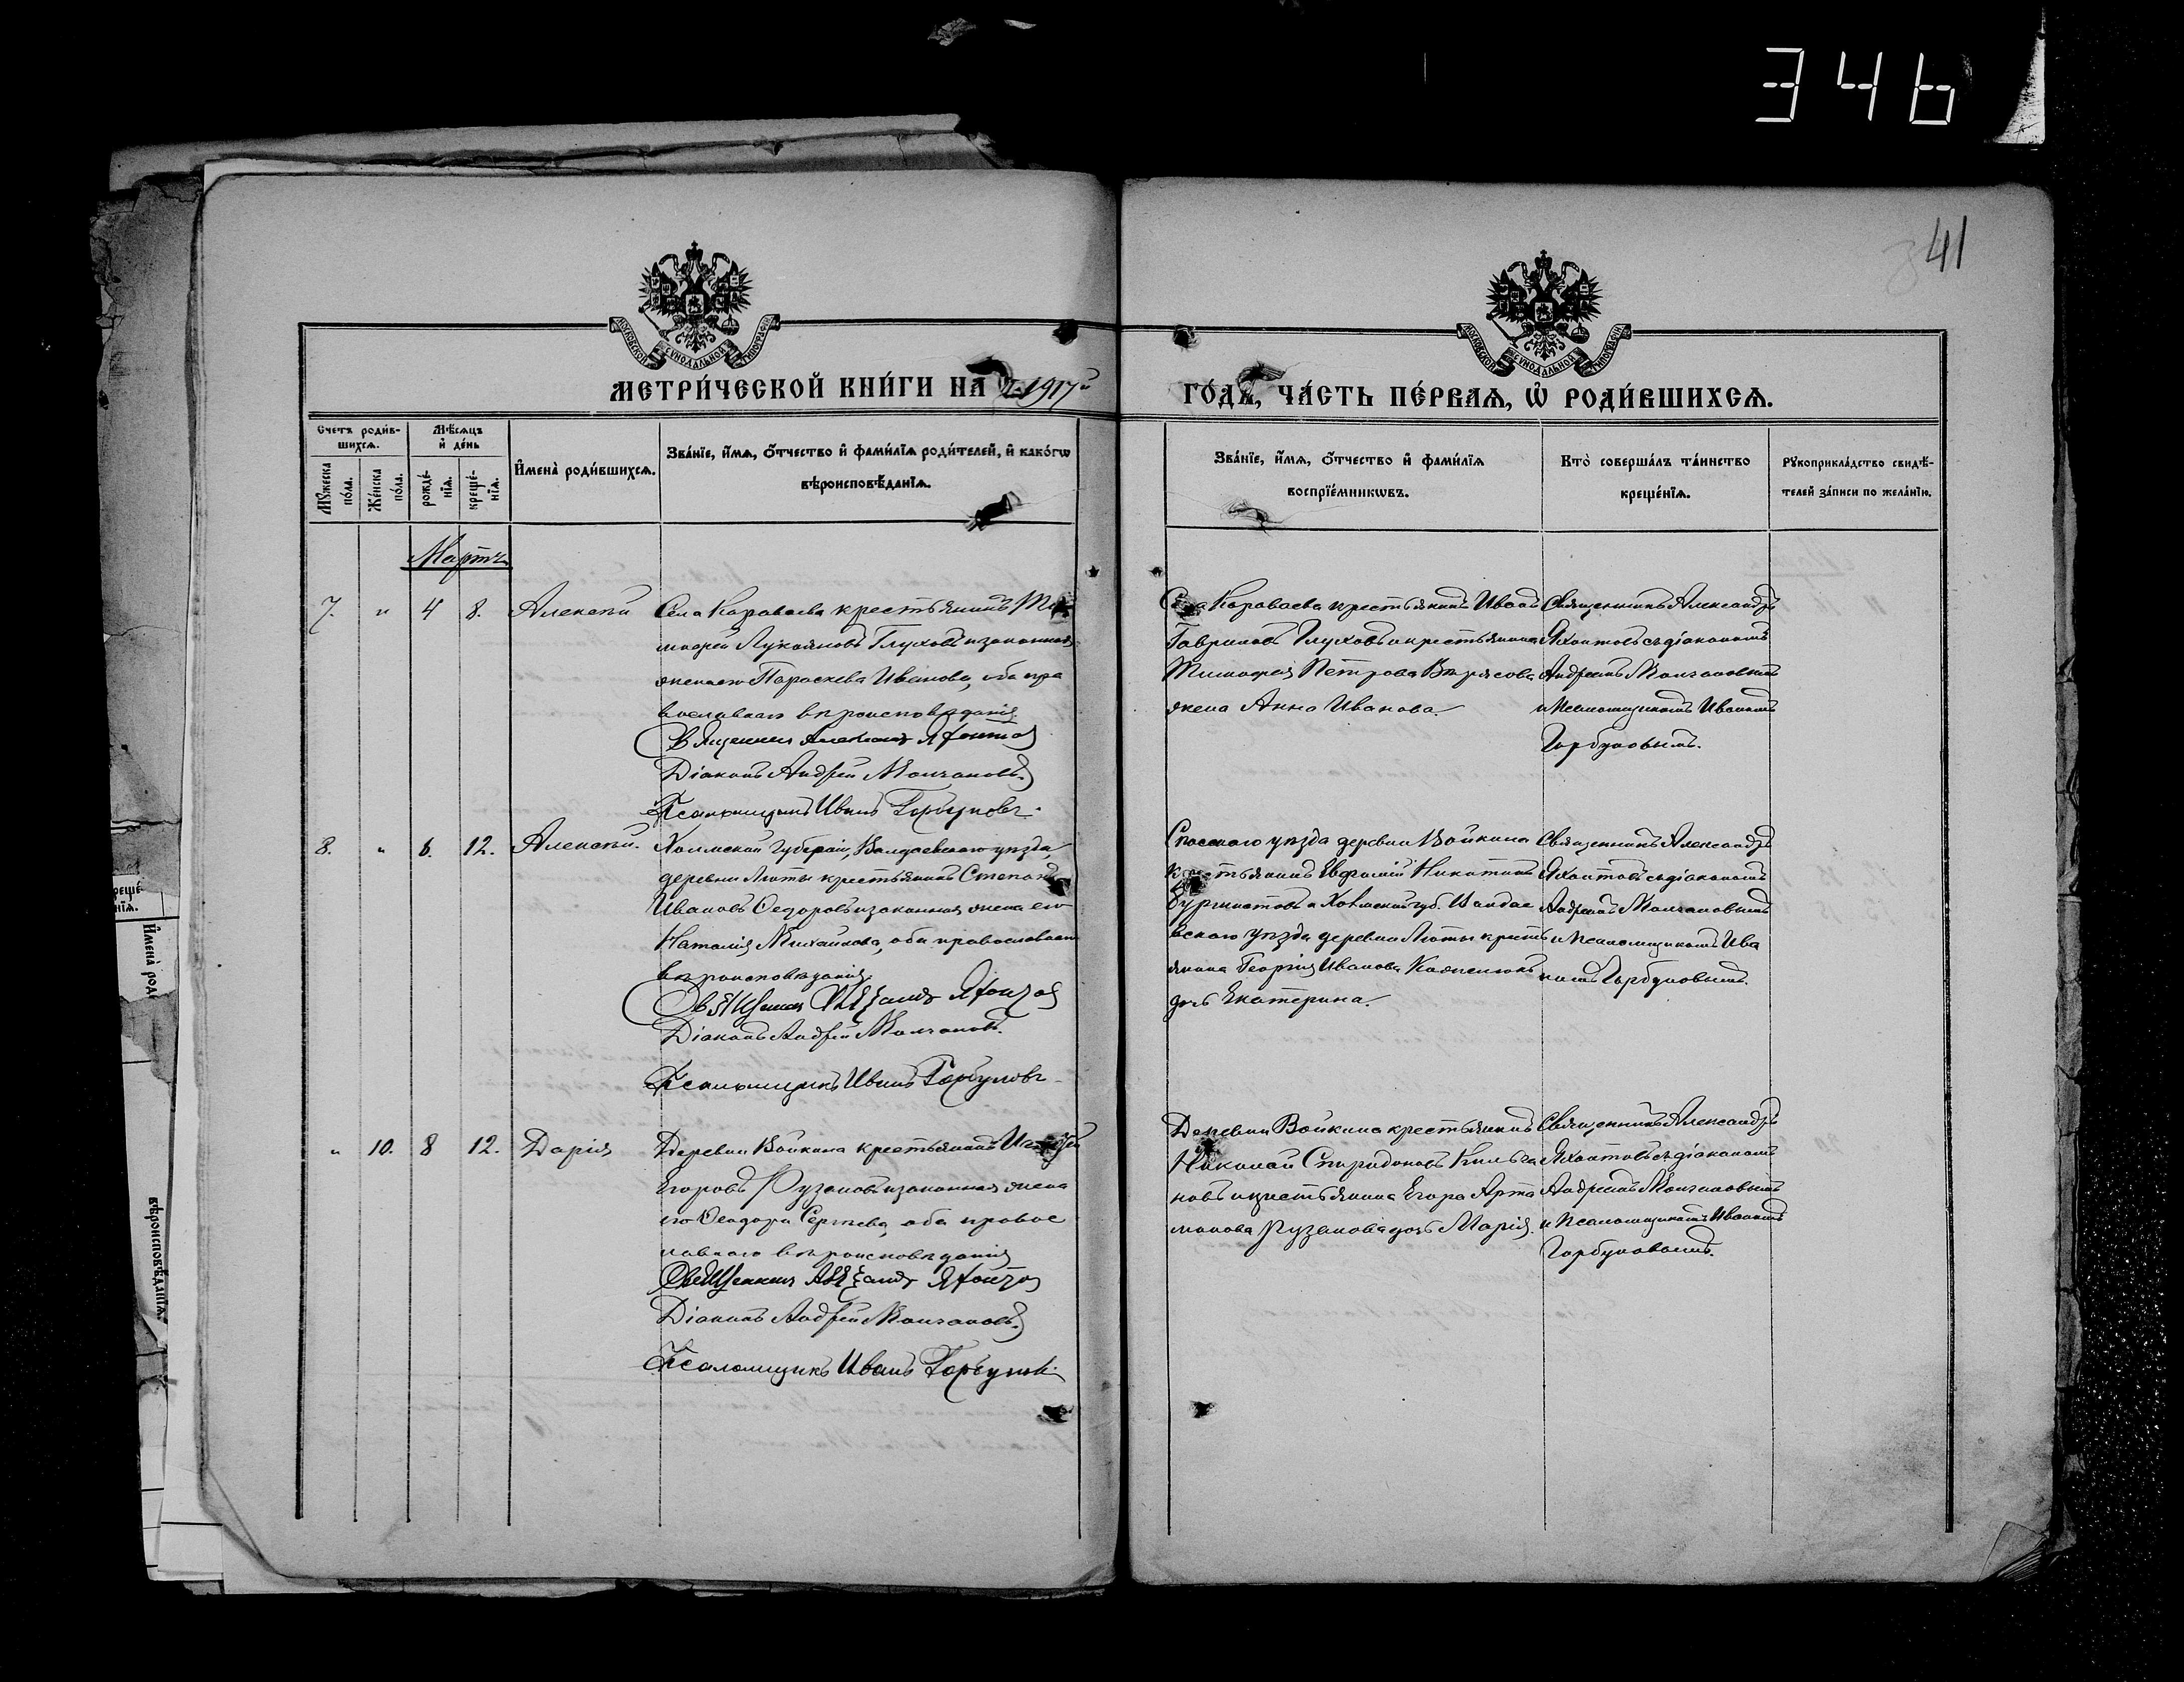 346
41
МОСКОВСКОЙ СѴНОДАЛЬНОЙ ТИПОГРАФІИ
МОСКОВСКОЙ СѴНОДАЛЬНОЙ ТИПОГРАФІИ
МЕТРИ́ЧЕСКОЙ КНИ́ГИ НА 1917й
ГО́ДЪ, ЧА́СТЬ ПЕ́РВАѦ, Ѡ҆ РОДИ́ВШИХСѦ.
Счетъ роди́в-
шихсѧ.
Мꙋжеска
по́ла.
Же́нска
по́ла.
Мѣ́сѧцъ
и҆ де́нь
рожде́-
нїѧ.
креще́-
нїѧ.
И҆мена̀ роди́вшихсѧ.
Зва́нїе, и҆́мѧ, ѻ҆́тчество и҆ фами́лїѧ роди́телей, и҆ како́гѡ
вѣроисповѣ́данїѧ.
Зва́нїе, и҆́мѧ, ѻ҆́тчество и҆ фами́лїѧ
воспрїе́мникѡвъ.
Кто̀ соверша́лъ та́инство
креще́нїѧ.
Рꙋкоприкла́дство свидѣ́-
телей за́писи по жела́нїю.
Мартъ
7. " 4 8. Алексѣй
Села Караваева крестьянинъ Ти
мофей Лукояновъ Глуховъ и законная
жена его Параскева Иванова, оба пра
вославнаго вѣроисповѣданія
Священникъ Александръ Яхонтовъ
Діаконъ Андрей Молчановъ
Псаломщикъ Иванъ Горбуновъ.
Села Караваева крестьянинъ Иванъ
Гавриловъ Глуховъ и крестьянина
Тимофея Петрова Вирясова
жена Анна Иванова.
Священникъ Александръ
Яхонтовъ съ діакономъ
Андреемъ Молчановымъ
и Псаломщикомъ Иваномъ
Горбуновымъ.
8. " 6. 12. Алексѣй.
Холмской Губерніи, уѣзда,
деревни Люты крестьянинъ Степанъ
Ивановъ Ѳедоровъ и законная жена его
Наталія Михайлова, оба православнаго
вѣроисповѣданія
Священникъ Александръ Яхонтовъ
Діаконъ Андрей Молчановъ.
Псаломщикъ Иванъ Горбуновъ
Спасскаго уѣзда деревни Войкина
крестьянинъ Никитинъ
и Холмской губ.
вскаго уѣзда деревни Люты кресть
янина Георгія Иванова
дочь Екатерина.
Священникъ Александръ
Яхонтовъ съ діакономъ
Андреемъ Молчановымъ
и Псаломщикомъ Ива
номъ Горбуновымъ.
" 10. 8 12. Дарія
Деревни Войкина крестьянинъ
Егоровъ Рузановъ и законная жена
его Ѳеодора Сергѣева, оба правос
лавнаго вѣроисповѣданія
Священникъ Александръ Яхонтовъ
Діаконъ Андрей Молчановъ.
Псаломщикъ Иванъ Горбуновъ
Деревни Войкина крестьянинъ
Николай Спиридоновъ Кильга
новъ и крестьянина Егора Арта
монова Рузанова дочь Марія.
Священникъ Александръ
Яхонтовъ съ діакономъ
Андреемъ Молчановымъ
и Псаломщикомъ Иваномъ
Горбуновымъ.
креще́-
нїѧ.
И҆мена̀ роди́
вѣроисповѣ́данїѧ.